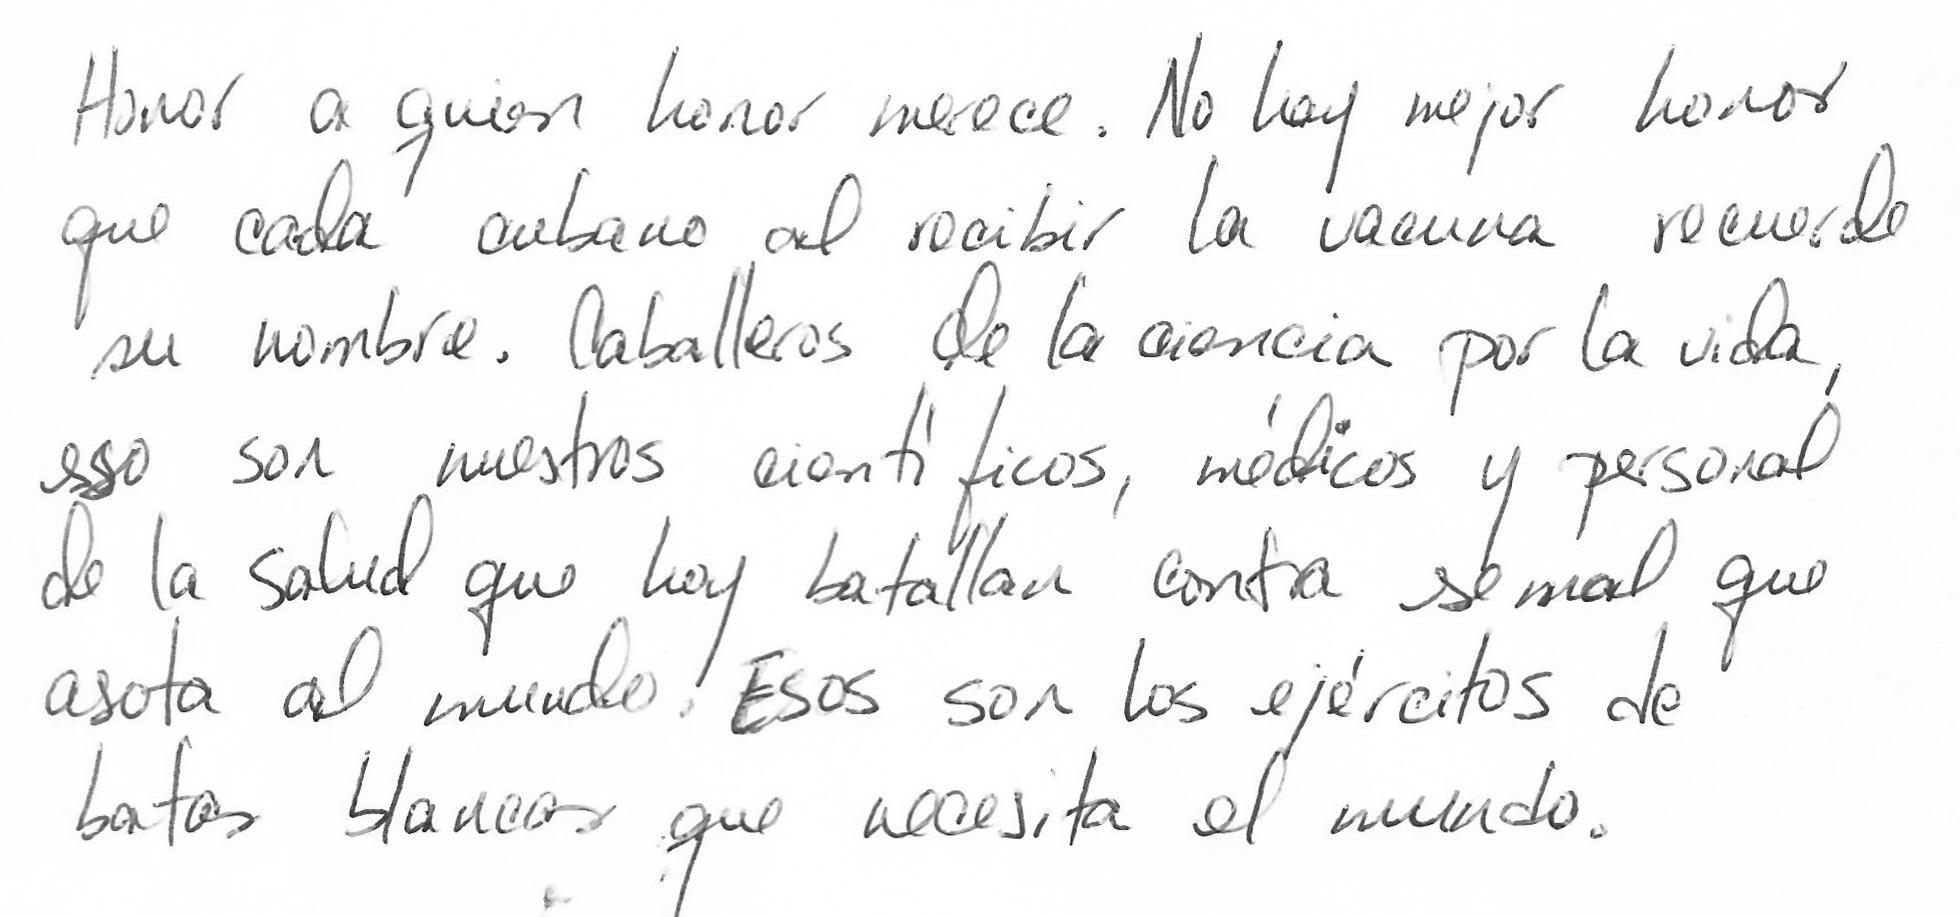 Honor a quien honor merece. No hay mejor honor
que cada cubano al recibir la vacuna recuerde
su nombre. Caballeros de la ciencia por la vida,
eso son nuestros científicos, médicos y personal
de la salud que hoy batallan contra ese mal que
asota al mundo. Esos son los ejércitos de
batas blancas que necesita el mundo.